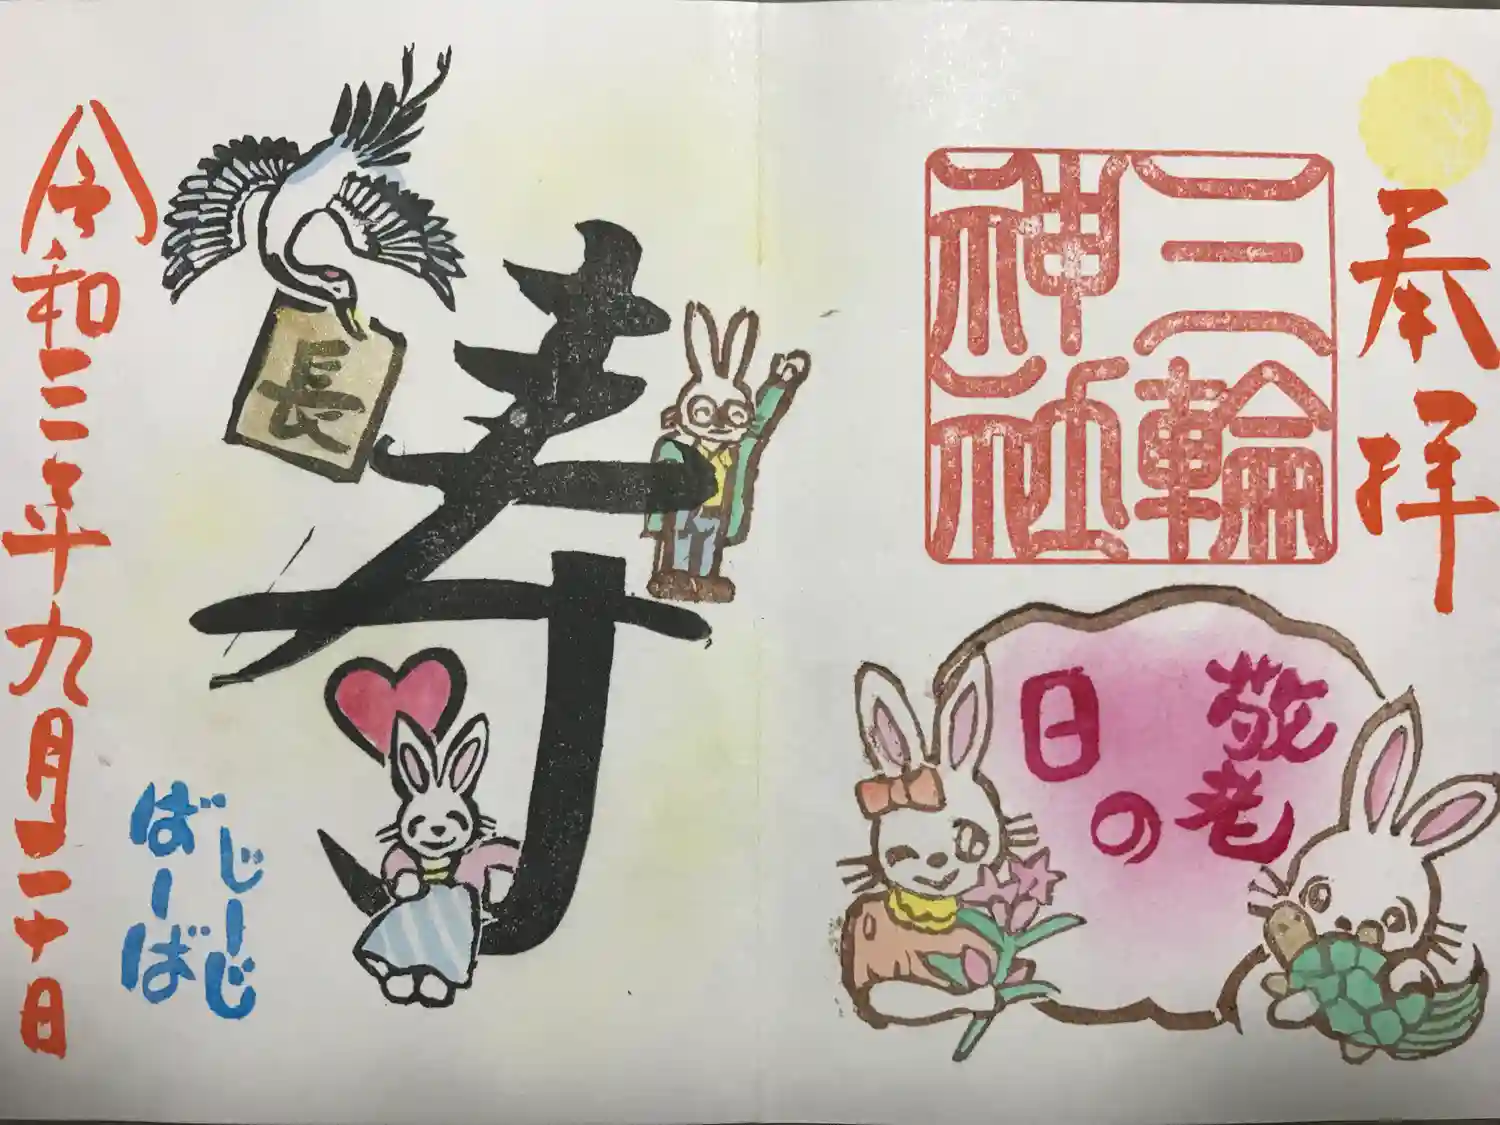 奉拝
三輪
神社
敬老
の
日
長
寿
じーじ
ばーば
令和三年九月二十日